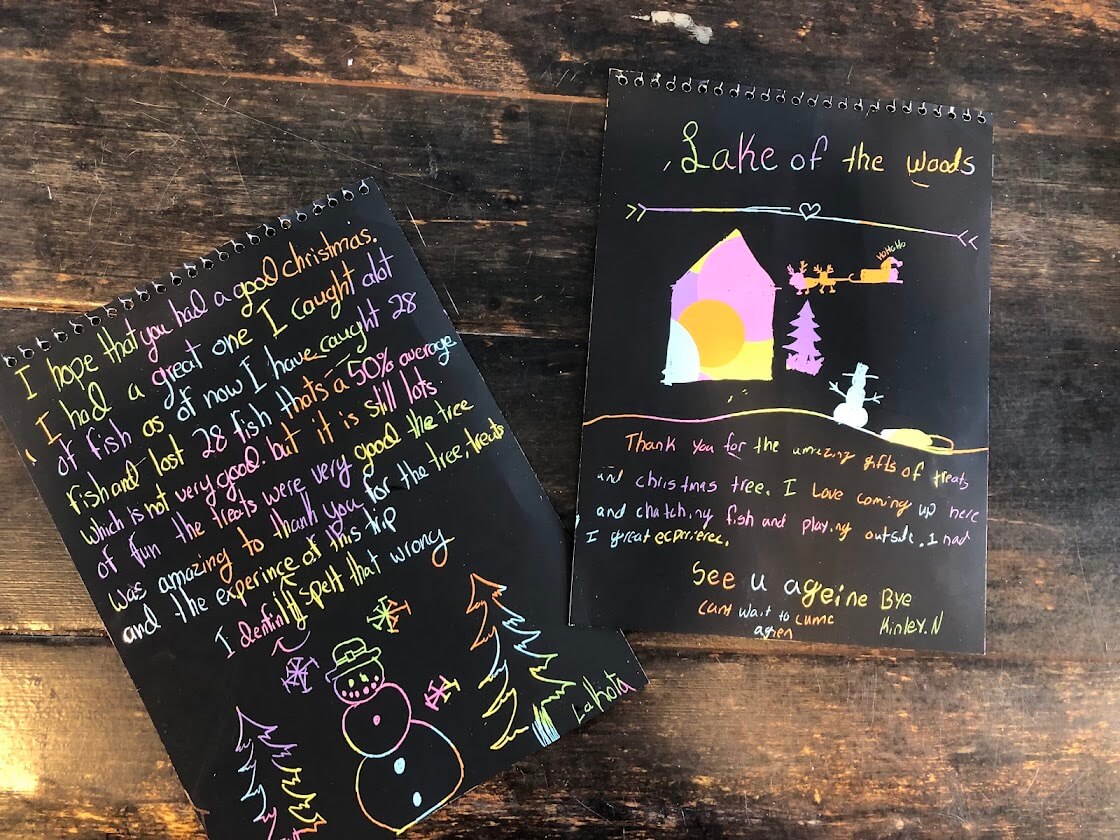 I hope that you had a good christmas.
I had a great one I caught alot
of fish as of now I have caught 28
fish and lost 28 fish thats a 50% average
which is not very good. but it is still lots
of fun the treats were very good the tree
was amazing to thank you for the tree, treats
and the experince of this trip
I dentintly spelt that wrong
Lakota
Lake of the woods
HoHoHo
Thank you for the amazing gifts of treats
and christmas tree. I Love coming up here
and chatching fish and playing outside. I had
I great experierec.
See u ageine Bye
cant wait to cume
agien
Kinley.N